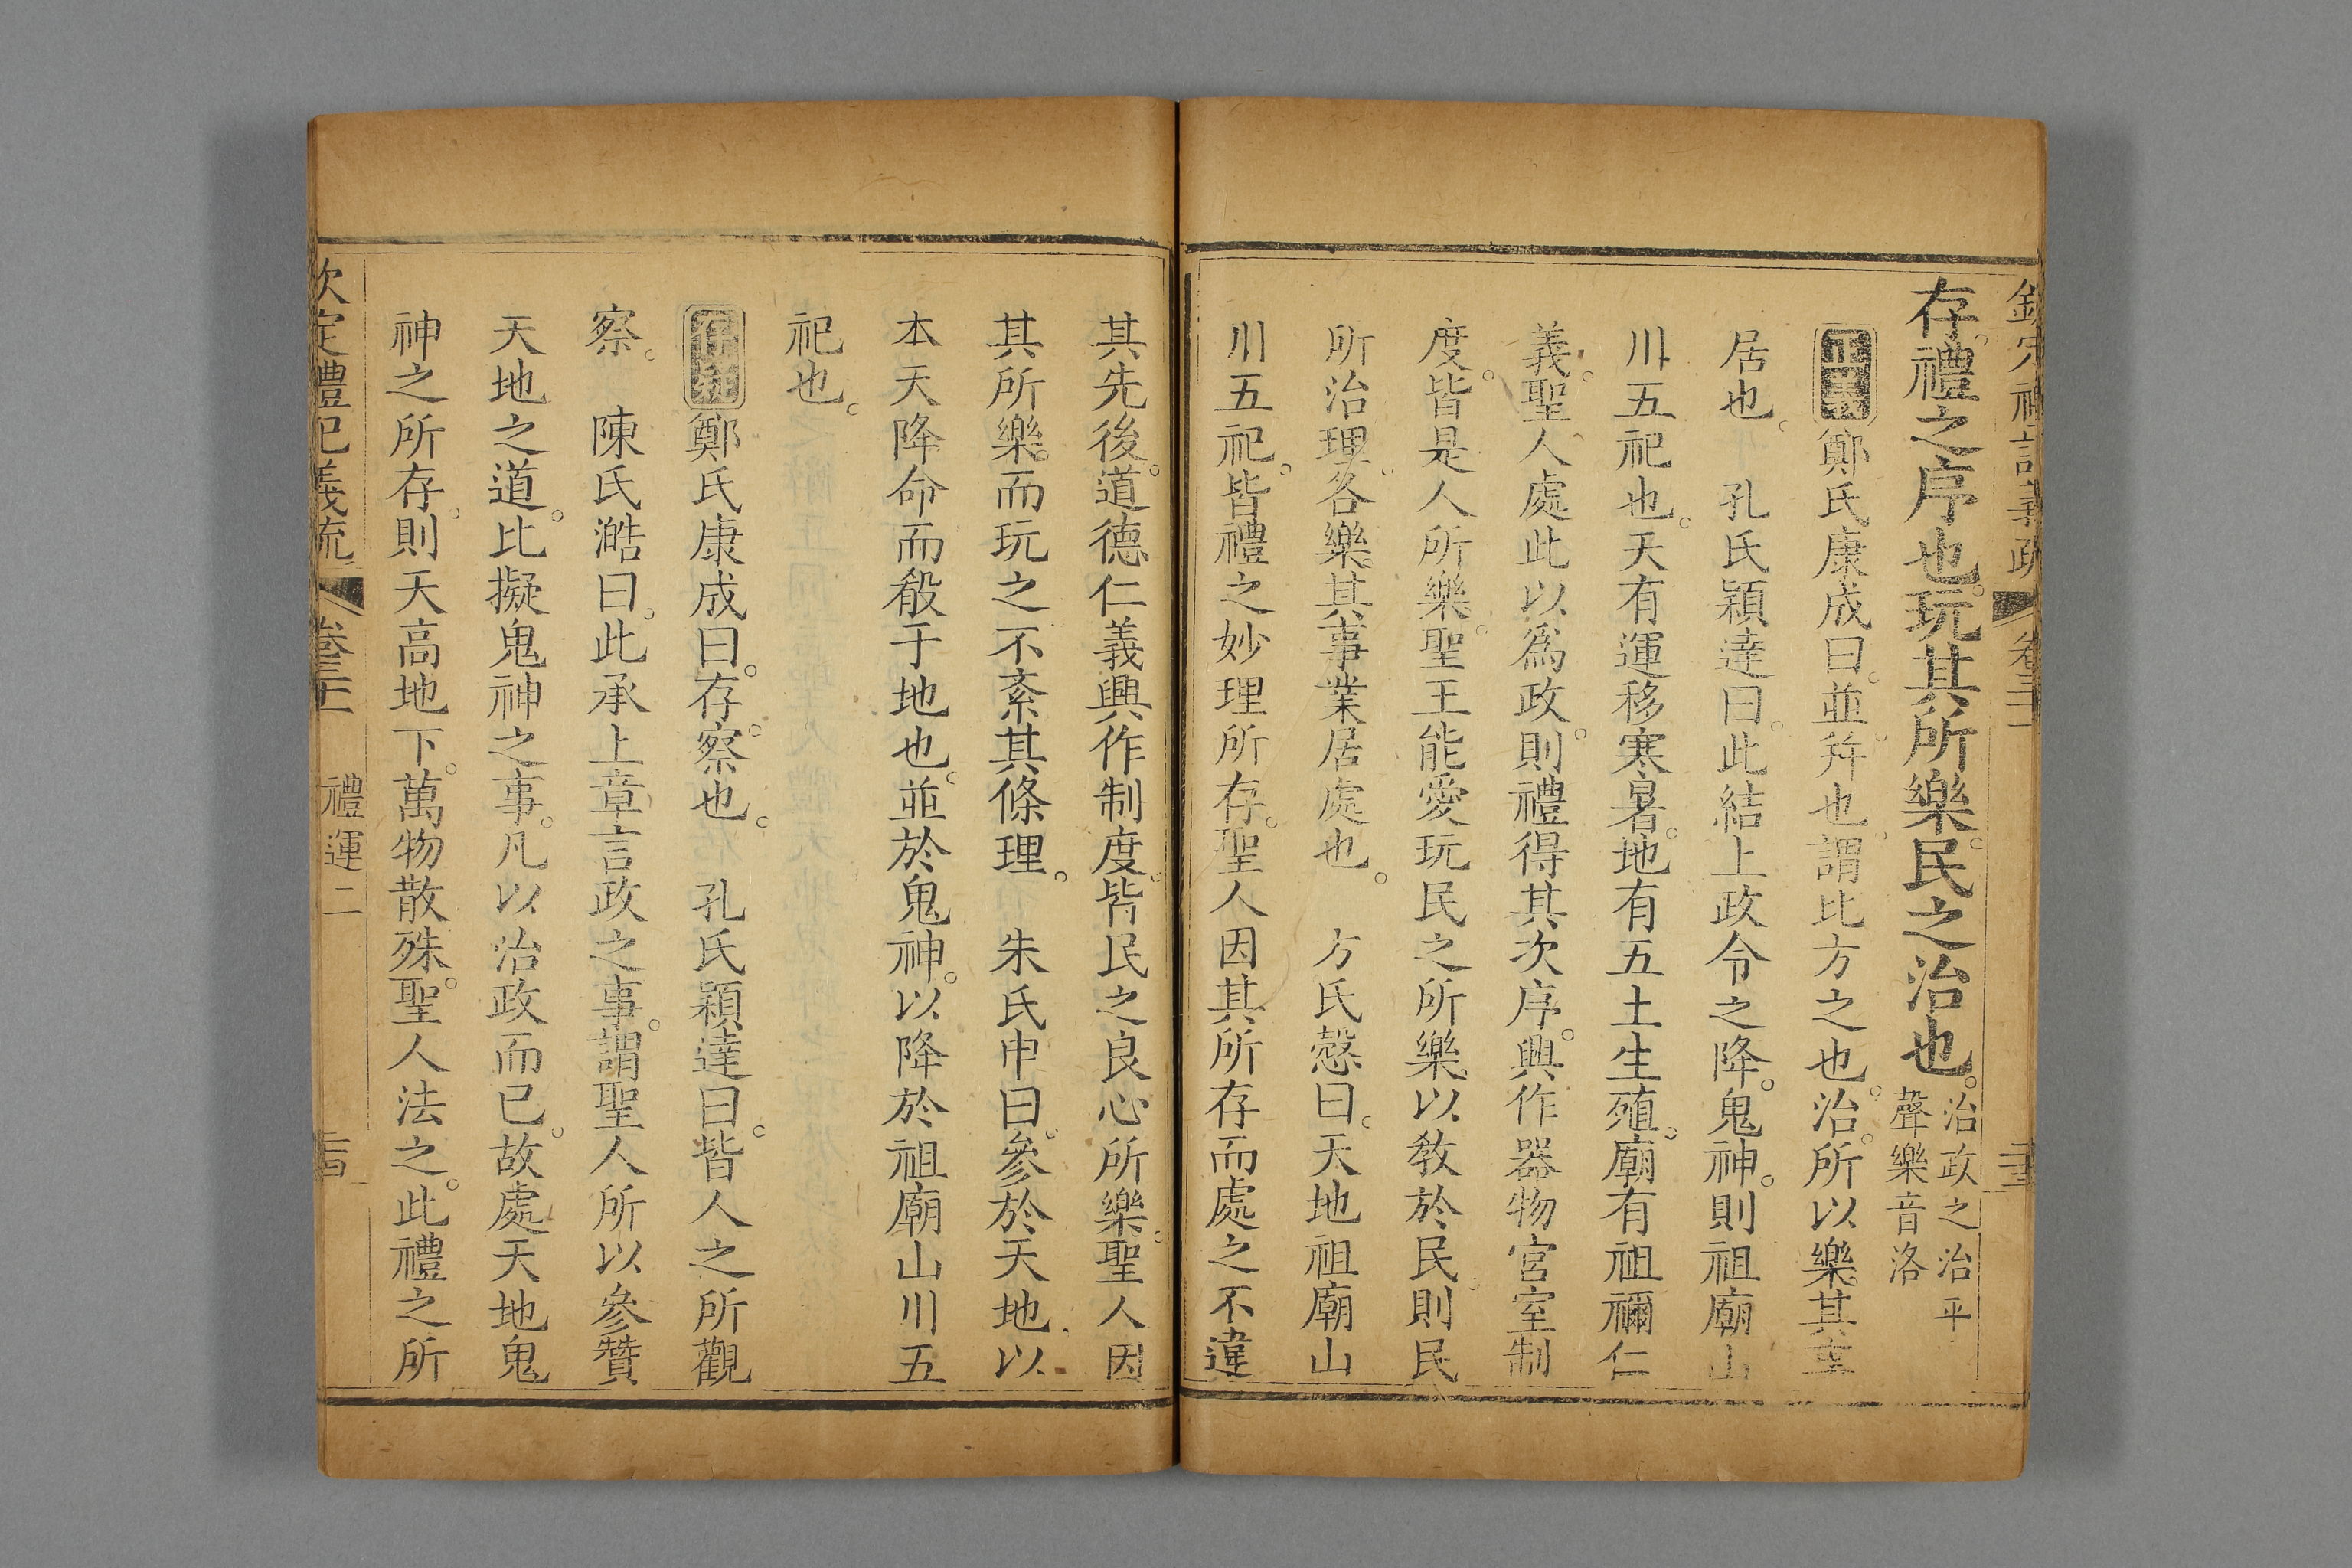 存。禮之序也。玩其所樂。民之治也。治政之治平聲樂音洛
正義鄭氏康成曰。並。并也。謂比方之也。治。所以樂其
居也。 孔氏穎達曰。此結上政令之降。鬼神。則祖廟山
川五祀也。天有運移寒暑。地有五土生殖。廟有祖禰仁
義。聖人處此以爲政。則禮得其次序。興作器物宮室制
度。皆是人所樂。聖王能愛玩民之所樂。以敎於民。則民
所治理。各樂其事業居處也。 方氏慤曰。天地祖廟山
川五祀。皆禮之妙理所存。聖人因其所存而處之不違
其先後。道德仁義興作制度。皆民之良心所樂。聖人因
其所樂。而玩之不紊其條理。 朱氏申曰。參於天地以
本天降命而殽于地也。並於鬼神。以降於祖廟山川五
祀也。
存疑鄭氏康成曰。存。察也。 孔氏穎達曰。皆人之所觀
察。 陳氏澔曰。此承上章言政之事。謂聖人所以參贊
天地之道。比擬鬼神之事。凡以治政而已。故處天地鬼
神之所存。則天高地下。萬物散殊。聖人法之。此禮之所
欽定禮記義疏 卷三十一 禮運二